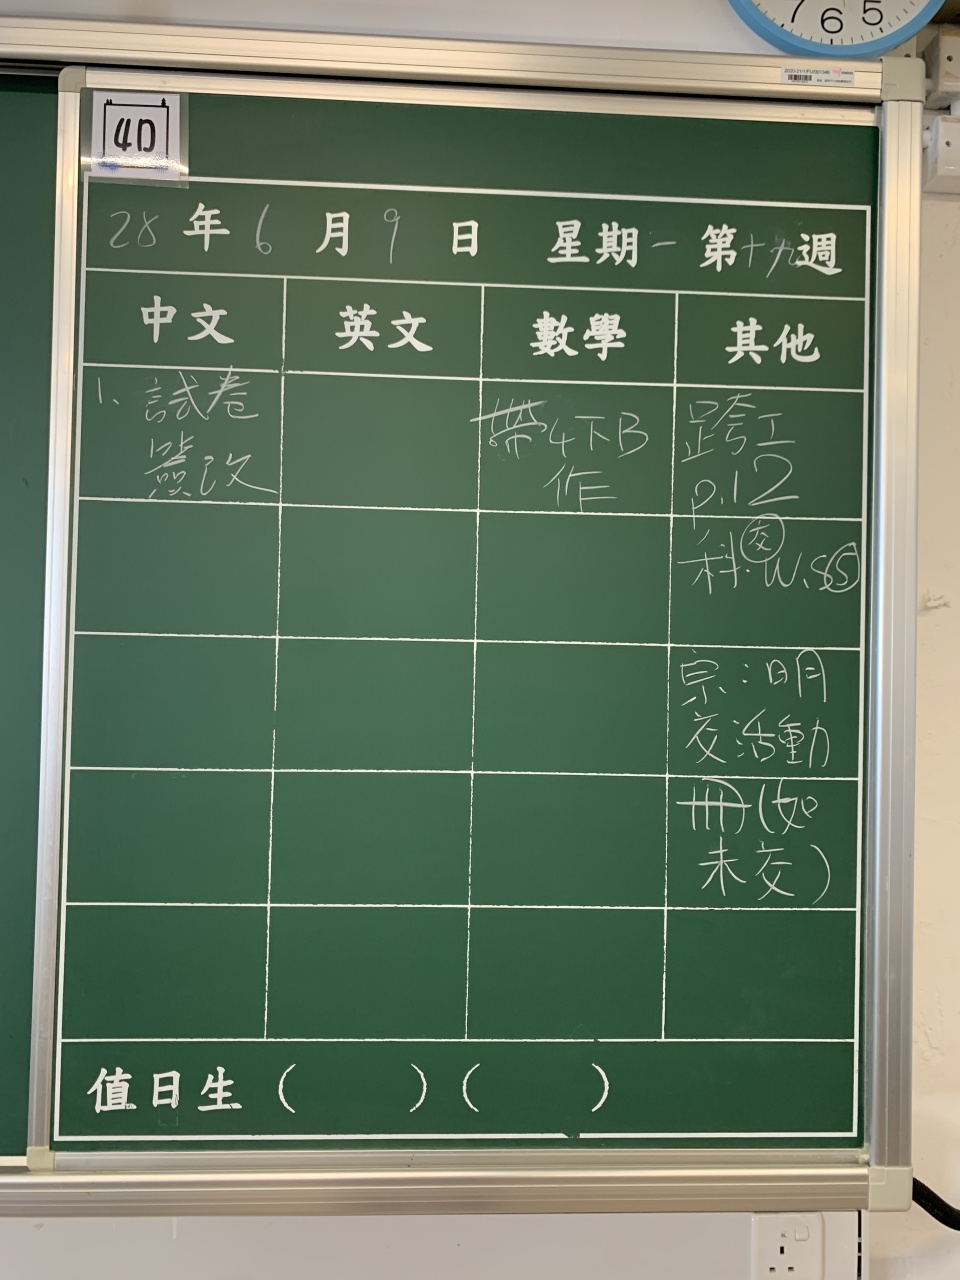 7 6 5
4D
28年6月9日 星期一 第十九週
中文 英文 數學 其他
1. 試卷
簽改
帶4下B
作
跨工
p.12
科.交 W.S⑤
宗：明
交活動
冊(如
未交)
值日生 ( ) ( )